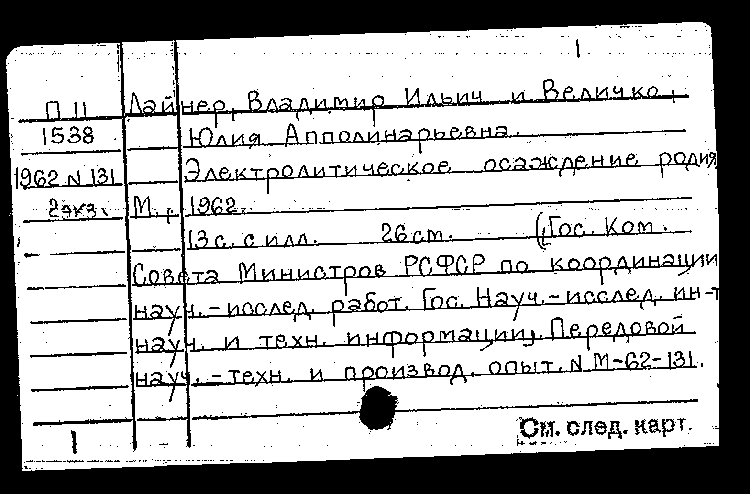 1
П 11 Лайнер, Владимир Ильич и Величко,
1538 Юлия Апполинарьевна.
1962 N 131 Электролитическое осаждение родия
2экз. М., 1962.
13 с. с илл. 26 см. (Гос. Ком.
Совета Министров РСФСР по координации
науч.-исслед. работ. Гос. Науч.-исслед. ин-т
науч. и техн. информации, Передовой
науч.-техн. и производ. опыт. N М-62-131.
См. след. карт.